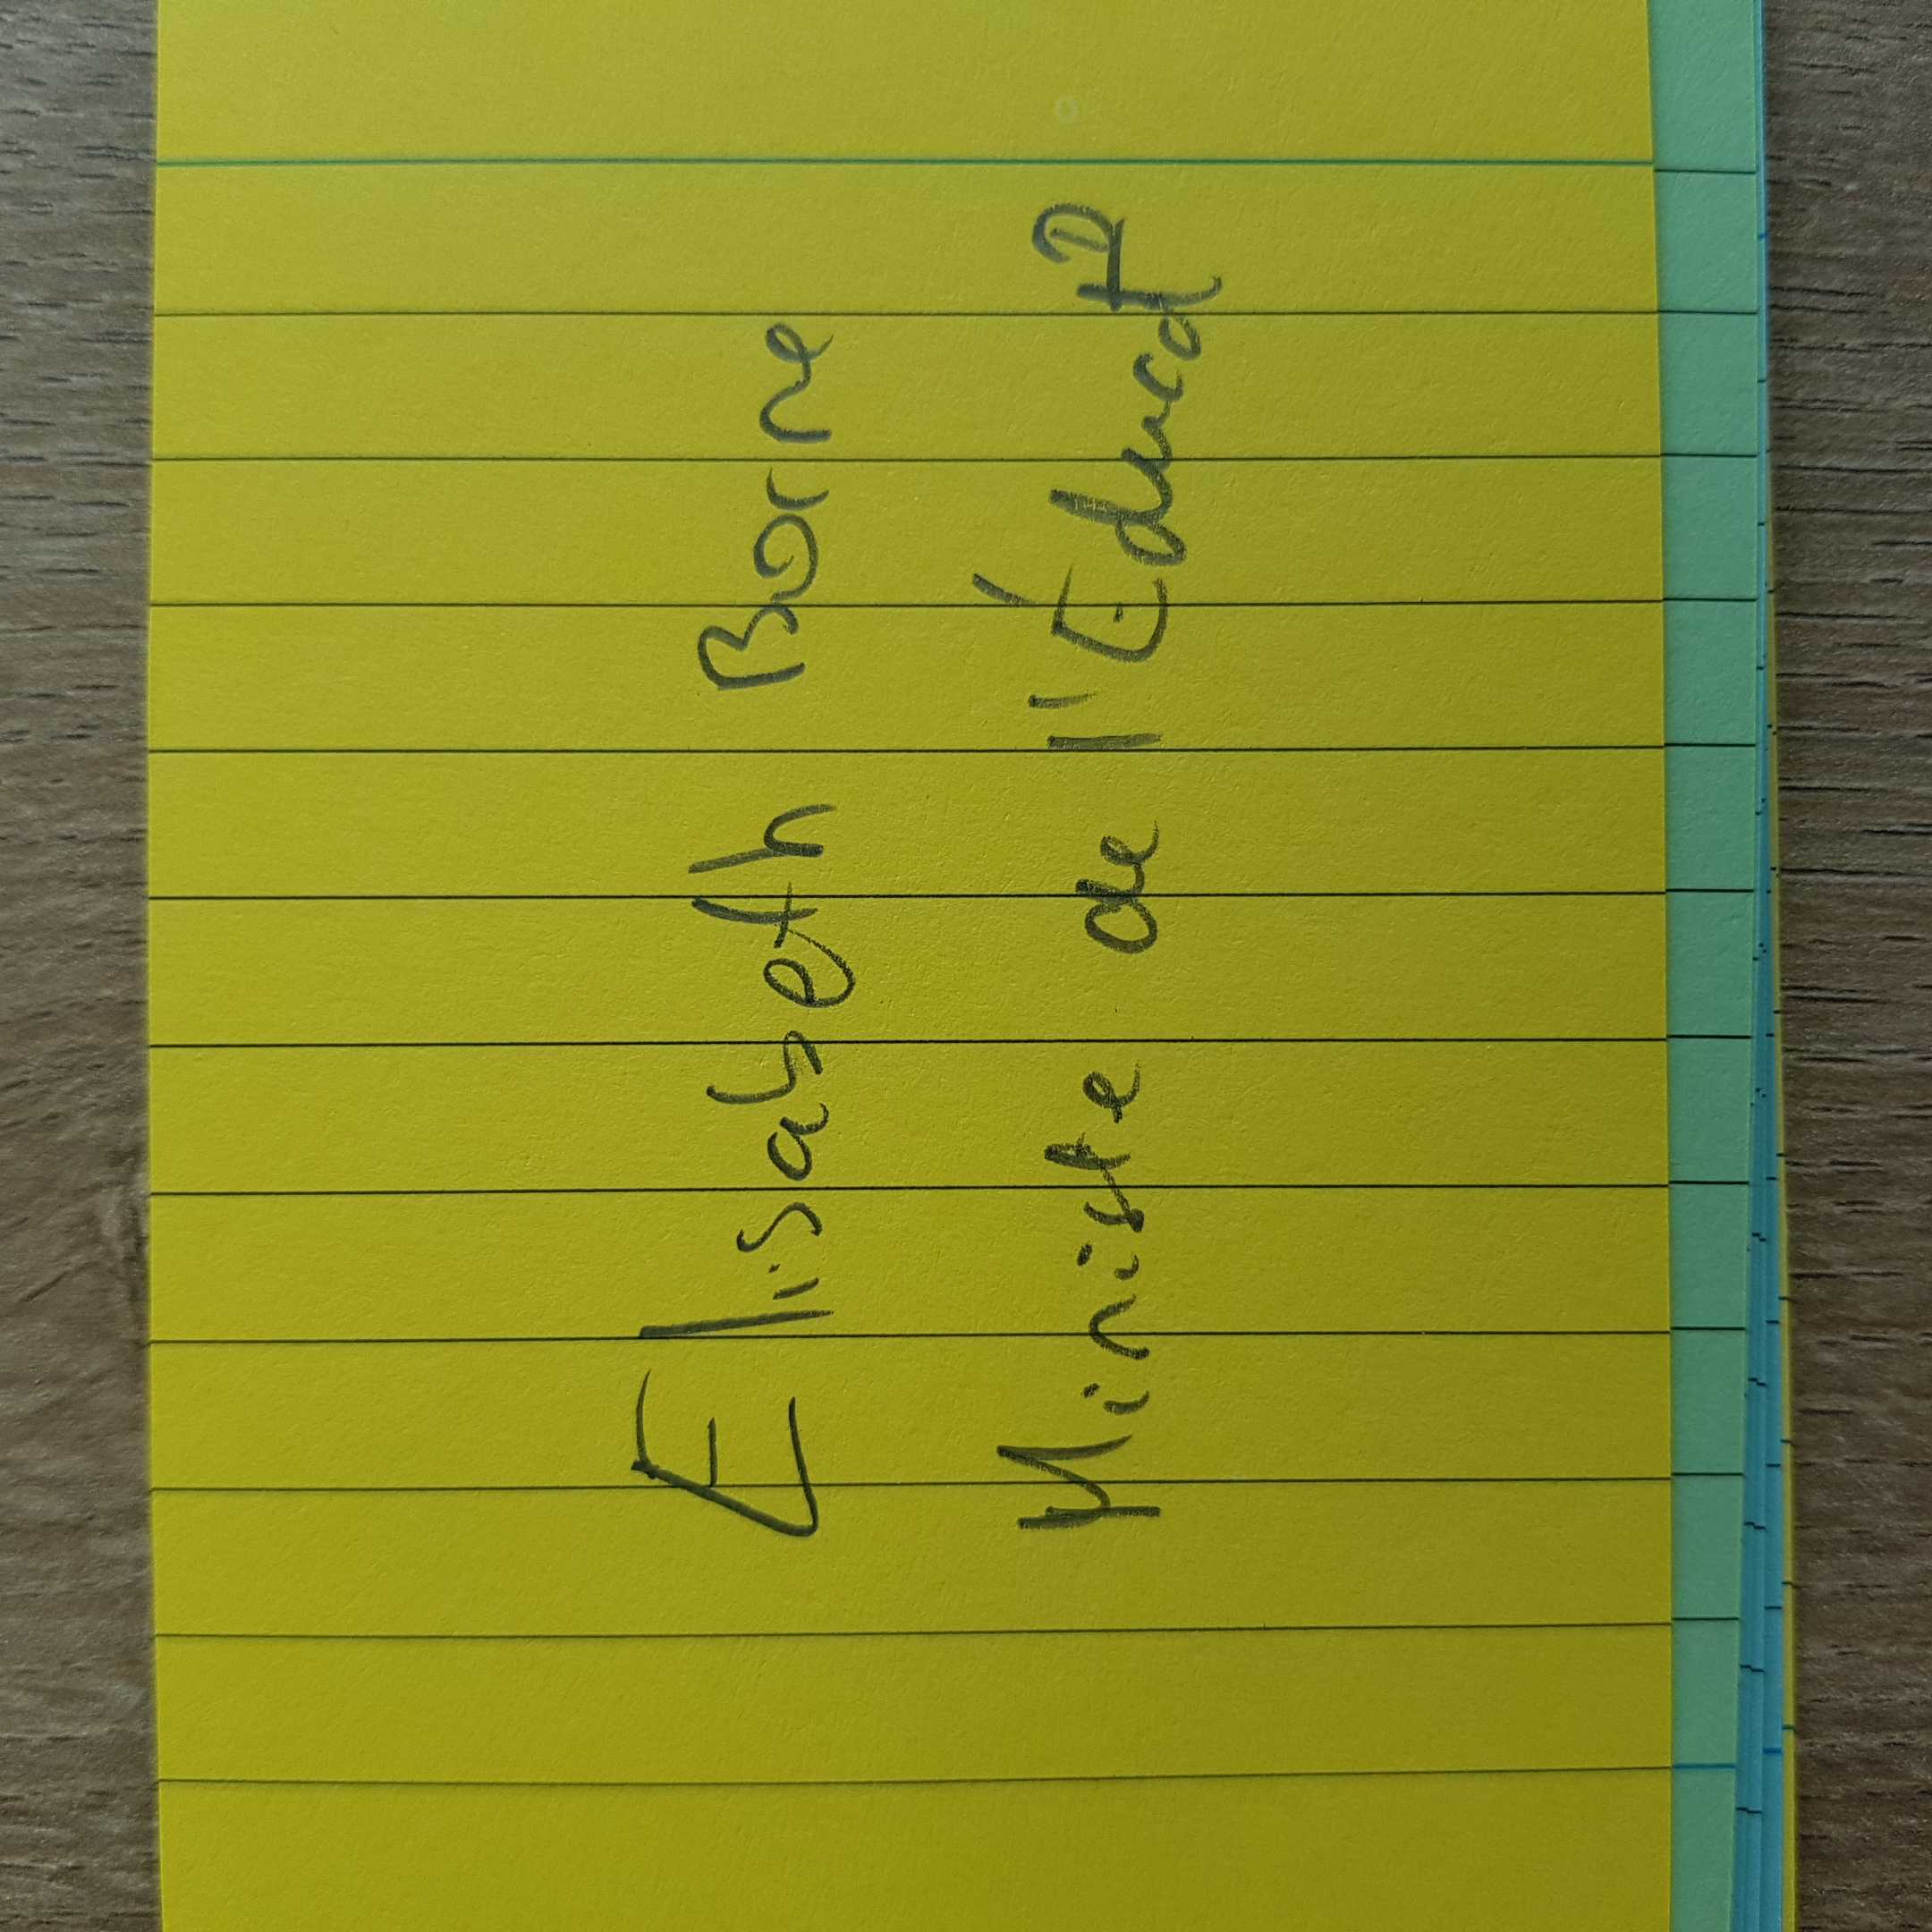 Elisabeth Borne
Ministe de l'Éducat°